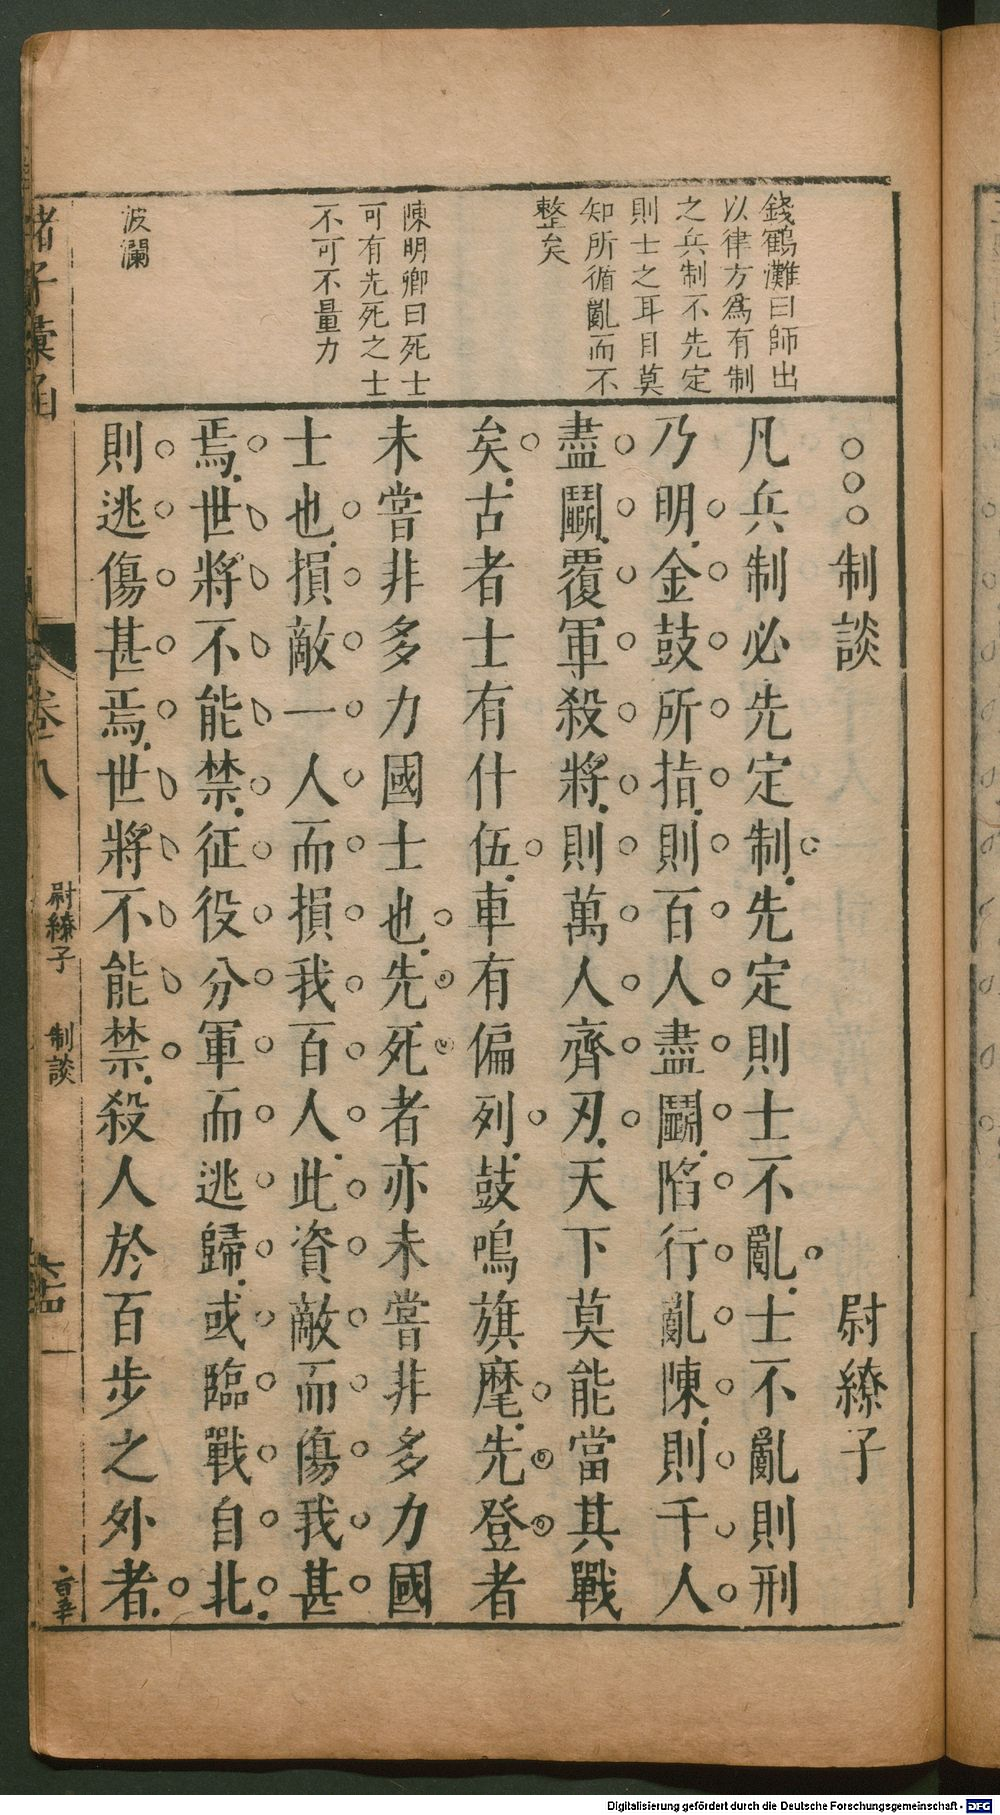 錢鶴灘曰師出
以律方爲有制
之兵制不先定
則士之耳目莫
知所循亂而不
整矣
陳明卿曰死士
可有先死之士
不可不量力
波瀾
制談 尉繚子
凡兵制必先定制先定則士不亂士不亂則刑
乃明金鼓所指則百人盡鬭陷行亂陳則千人
盡鬭覆軍殺將則萬人齊刃天下莫能當其戰
矣古者士有什伍車有偏列鼓鳴旗麾先登者
未嘗非多力國士也先死者亦未嘗非多力國
士也損敵一人而損我百人此資敵而傷我甚
焉世將不能禁征役分軍而逃歸或臨戰自北
則逃傷甚焉世將不能禁殺人於百步之外者
諸子彙函 卷八 尉繚子 制談 一
Digitalisierung gefördert durch die Deutsche Forschungsgemeinschaft - DFG